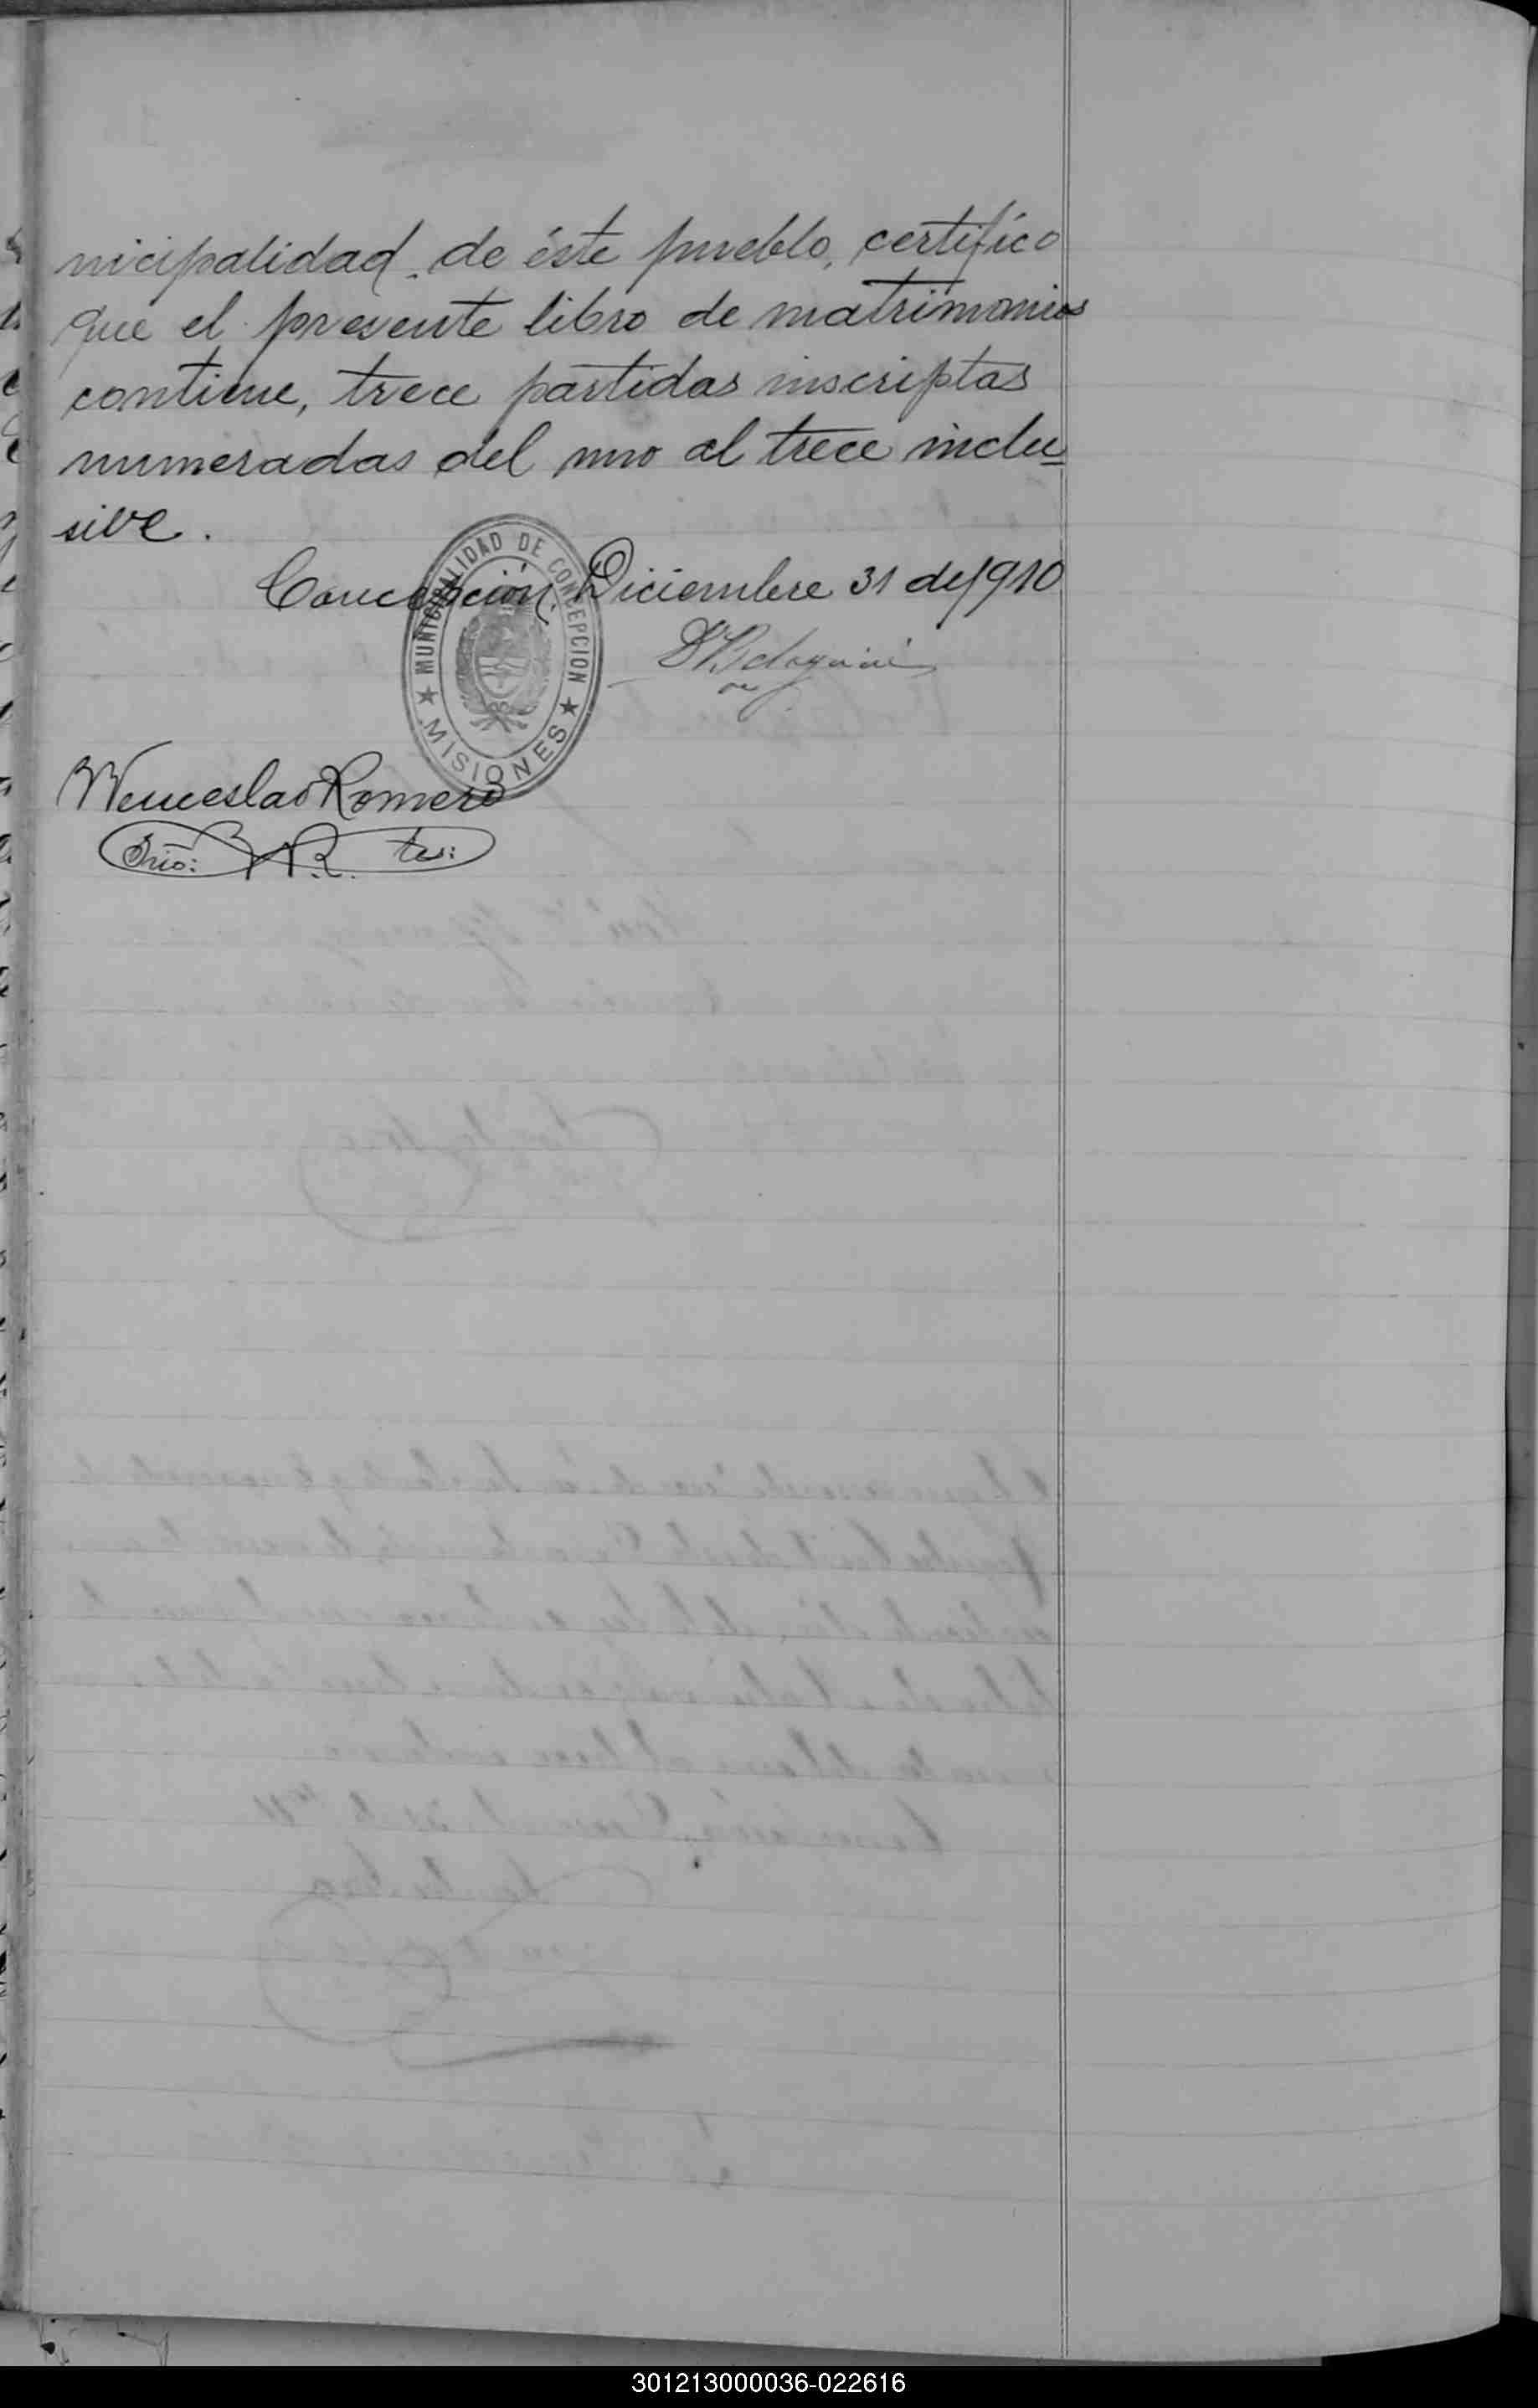 nicipalidad de éste pueblo, certifico
que el presente libro de matrimonios
contiene, trece partidas inscriptas
numeradas del uno al trece inclu=
sive.
Concepción, Diciembre 31 de 1910
MUNICIPALIDAD DE CONCEPCION
★ MISIONES ★
Wenceslao Romero
Srio: W.R. tes:
301213000036-022616